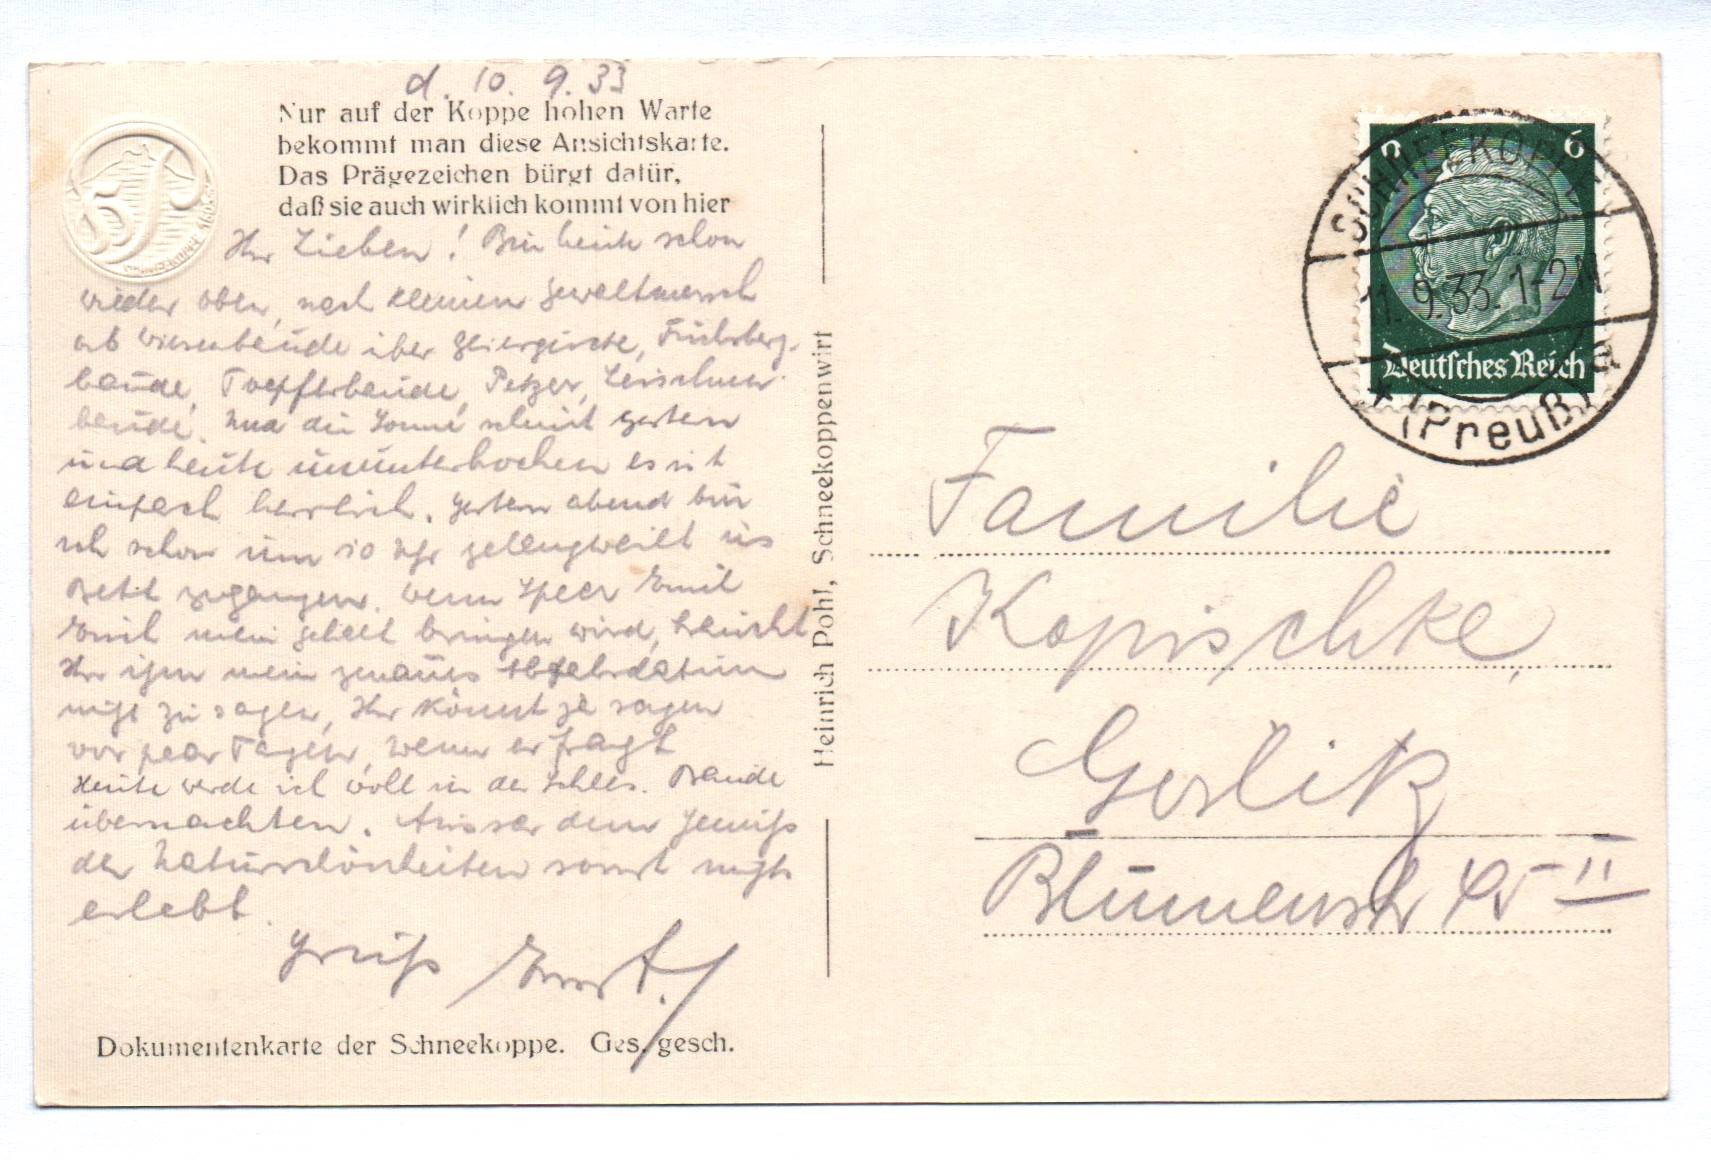 d. 10. 9. 33
Nur auf der Koppe hohen Warte
bekommt man diese Ansichtskarte.
Das Prägezeichen bürgt dafür,
daß sie auch wirklich kommt von hier
Ihr Lieben! Bin heute schon
wieder oben, nach kleinen Gewaltmarsch
ab Wiesenbaude über Geiergucke, Fuchsberg-
baude, Töpferbaude, Petzer, Leischner
baude. Und die Sonne scheint gestern
und heute ununterbochen es ist
einfach herrlich. Gestern abend bin
ich schon um 10 Uhr gelangweilt ins
Bett gegangen. Wenn Emil
Emil mein Gehalt bringen wird, braucht
Ihr ihm mein genaues Abfahrdatum
nicht zu sagen, Ihr könnt ja sagen
vor paar Tagen, wenn er fragt
Heute werde ich woll in der Schles. Baude
übernachten. Ausser dem Genuß
der Naturschönheiten sonst nichts
erlebt.
Gruß Ernst.
Dokumentenkarte der Schneekoppe. Ges. gesch.
Heinrich Pohl, Schneekoppenwirt
6 6
Deutsches Reich
SCHNEEKOPPE
11.9.33. 1-2N
* (Preuß) a
Familie
Kopischke,
Görlitz
Blumenstr 45 II